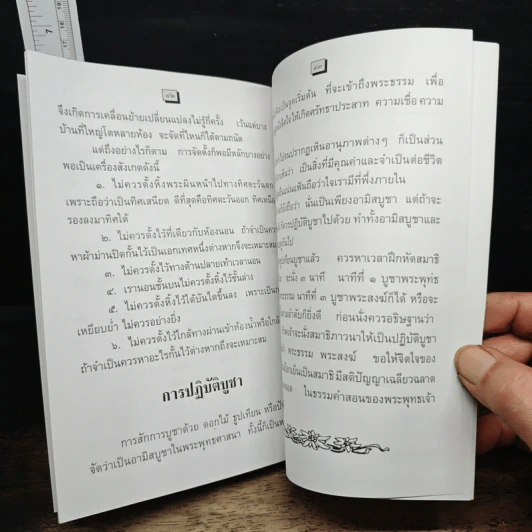 จึงเกิดการเคลื่อนย้ายเปลี่ยนแปลงไม่รู้กี่ครั้ง เว้นแต่บาง
บ้านที่ใหญ่โตหลายห้อง จะจัดที่ไหนก็ได้ตามถนัด
แต่ถึงอย่างไรก็ตาม การจัดตั้งก็พอมีหลักบางอย่าง
พอเป็นเครื่องสังเกตดังนี้
๑. ไม่ควรตั้งหิ้งพระผินหน้าไปทางทิศตะวันตก
เพราะถือว่าเป็นทิศเสนียด ดีที่สุดคือทิศตะวันออก ทิศเหนือ
รองลงมาทิศใต้
๒. ไม่ควรตั้งไว้ที่เดียวกับห้องนอน ถ้าจำเป็นควร
หาผ้าม่านปิดกั้นไว้เป็นเอกเทศหนึ่งต่างหากจึงจะเหมาะสม
๓. ไม่ควรตั้งไว้ทางด้านปลายเท้าเวลานอน
๔. เรานอนชั้นบนไม่ควรตั้งหิ้งไว้ชั้นล่าง
๕. ไม่ควรตั้งหิ้งไว้ใต้บันไดขึ้นลง เพราะเป็นการ
เหยียบย่ำ ไม่ควรอย่างยิ่ง
๖. ไม่ควรตั้งไว้ใกล้ทางผ่านเข้าห้องน้ำหรือใกล้
ถ้าจำเป็นควรหาอะไรกั้นไว้ต่างหากถึงจะเหมาะสม
การปฏิบัติบูชา
การสักการบูชาด้วย ดอกไม้ ธูปเทียน หรือ
จัดว่าเป็นอามิสบูชาในพระพุทธศาสนา ทั้งนี้ก็เป็น
เป็นจุดเริ่มต้น ที่จะเข้าถึงพระธรรม เพื่อ
จิตใจให้เกิดศรัทธาประสาท ความเชื่อ ความ
จนปรากฏเห็นอานุภาพต่างๆ ก็เป็นส่วน
ว่า เป็นสิ่งที่มีคุณค่าและจำเป็นต่อชีวิต
แน่นแฟ้นถือว่าใจเรามีที่พึ่งภายใน
ถือว่า นั้นเป็นเพียงอามิสบูชา แต่ถ้าจะ
ควรปฏิบัติบูชาไปด้วย ทำทั้งอามิสบูชาและ
กันไป
บูชาแล้ว ควรหาเวลาฝึกหัดสมาธิ
จะนั่ง ๓ นาที นาทีที่ ๑ บูชาพระพุทธ
พระธรรม นาทีที่ ๓ บูชาพระสงฆ์ก็ได้ หรือจะ
ลำดับก็ยิ่งดี ก่อนนั่งควรอธิษฐานว่า
จะนั่งสมาธิภาวนาให้เป็นปฏิบัติบูชา
พระธรรม พระสงฆ์ ขอให้จิตใจของ
เป็นสมาธิ มีสติปัญญาเฉลียวฉลาด
ในธรรมคำสอนของพระพุทธเจ้า
7